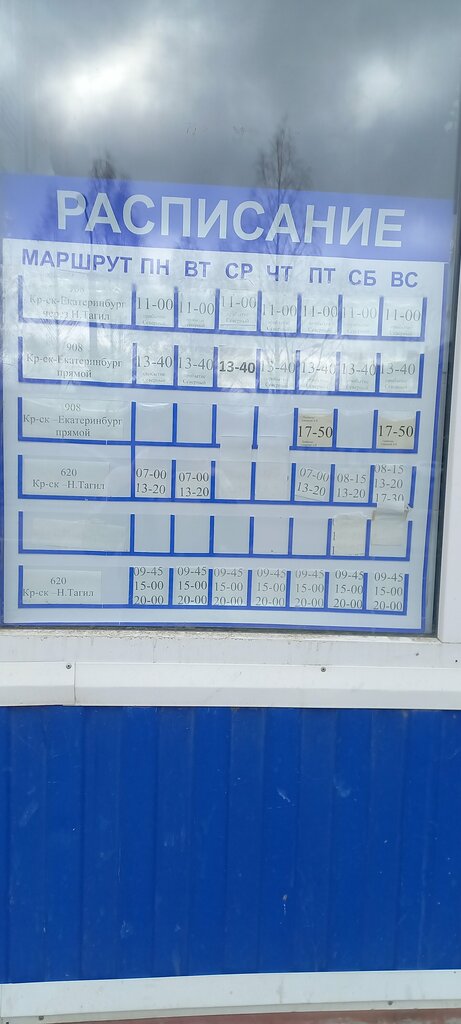 РАСПИСАНИЕ
МАРШРУТ ПН ВТ СР ЧТ ПТ СБ ВС
Кр-ск-Екатеринбург
через Н.Тагил
11-00 11-00 11-00 11-00 11-00 11-00 11-00
908
Кр-ск-Екатеринбург
прямой
13-40 13-40 13-40 13-40 13-40 13-40 13-40
908
Кр-ск –Екатеринбург
прямой
17-50 17-50
620
Кр-ск –Н.Тагил
07-00 07-00 07-00 08-15 08-15
13-20 13-20 13-20 13-20 13-20
17-30
620
Кр-ск –Н.Тагил
09-45 09-45 09-45 09-45 09-45 09-45 09-45
15-00 15-00 15-00 15-00 15-00 15-00 15-00
20-00 20-00 20-00 20-00 20-00 20-00 20-00